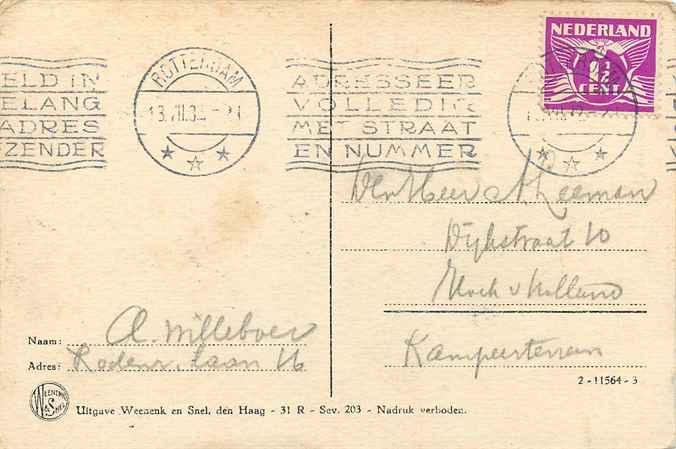 ELD IN
ELANG
ADRES
ZENDER
ROTTERDAM
ADRESSEER
VOLLEDIG
MET STRAAT
EN NUMMER
NEDERLAND
1½
CENT
Den Heer A Leeman
Dijkstraat 10
Hoek v Holland
Kampeerterrein
Naam: A. Willeboer
Adres: Rodenr. Laan 16
2-11564-3
Uitgave Weenenk en Snel, den Haag - 31 R - Sev. 203 - Nadruk verboden.